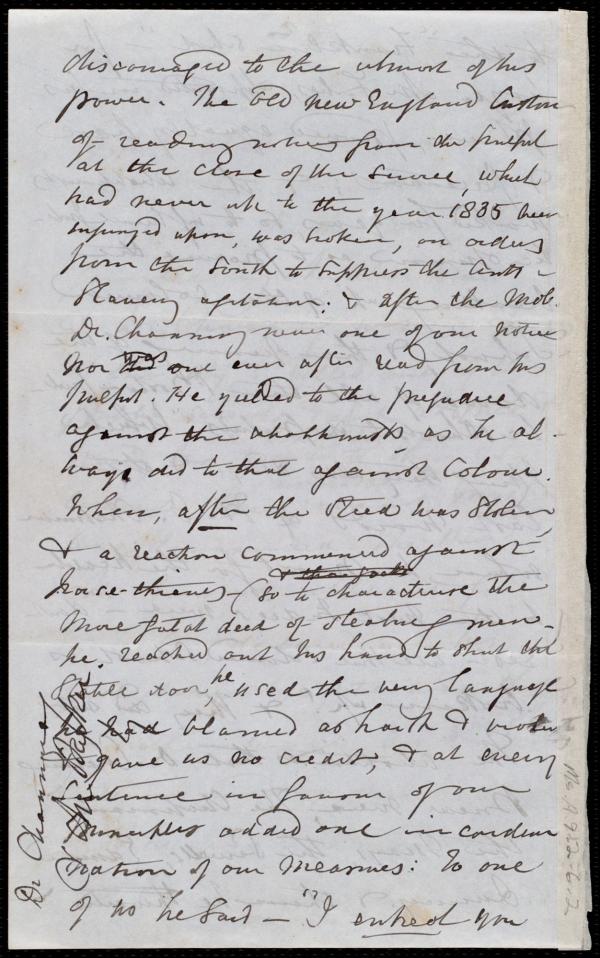 discouraged to the utmost of his
power. The Old New England Custom
of reading notices from the pulpit
at the close of the service, which
had never up to the year 1835 been
infringed upon, was broken, on orders
from the South to suppress the Anti-
Slavery agitation; & after the Mob
Dr. Channing never one of our notices
nor was one ever after read from his
pulpit. He yielded to the prejudice
against the abolitionists as he al-
ways did to that against Colour.
When, after the Steed was Stolen,
& a reaction commenced against
horse-thieves - (so to characterise the
more fatal deed of Stealing men -
he reached out his hand to shut the
Stable door, he used the very language
he had blamed as harsh & violent
gave us no credit, & at every
Sentence in favour of our
principles added one in condem
nation of our measures: To one
of us he said - "I entreat you
Dr Channing
Ms. A. 9. 2. 6. 2